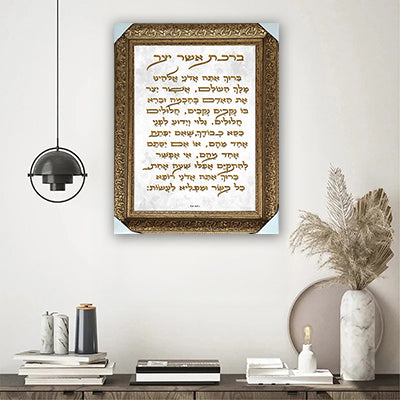 ברכת אשר יצר
ברוך אתה אדני אלהינו
מלך העולם, אשר יצר
את האדם בחכמה וברא
בו נקבים נקבים, חלולים
חלולים. גלוי וידוע לפני
כסא כבודך, שאם יפתח
אחד מהם, או אם יסתם
אחד מהם, אי אפשר
להתקיים אפלו שעה אחת.
ברוך אתה אדני רופא
כל בשר ומפליא לעשות: